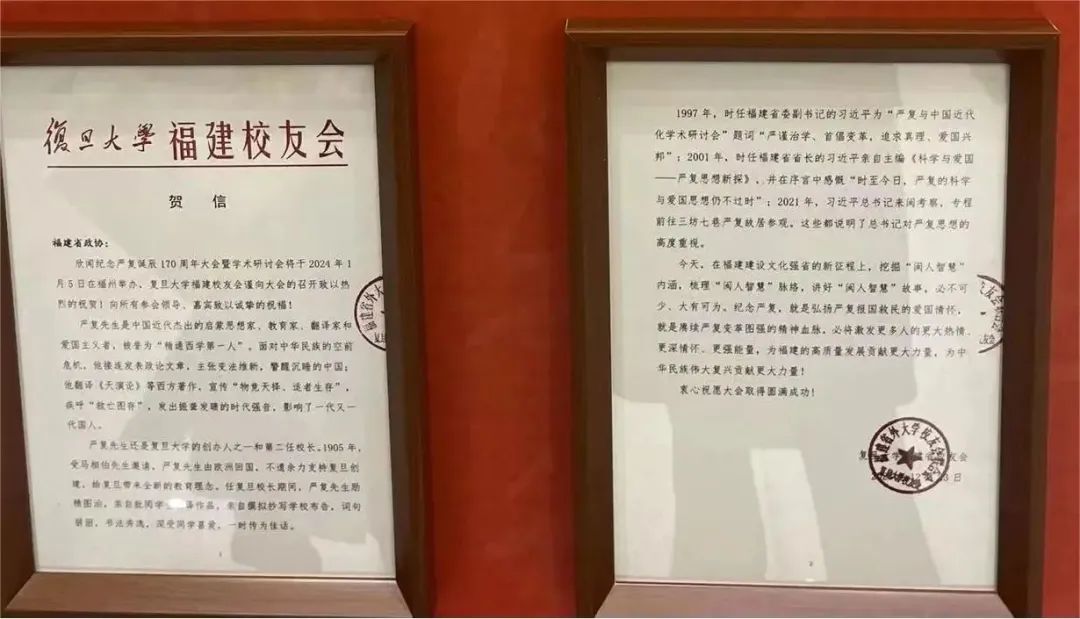 復旦大學 福建校友会
贺 信
福建省政协：
欣闻纪念严复诞辰 170 周年大会暨学术研讨会将于 2024 年 1
月 5 日在福州举办，复旦大学福建校友会谨向大会的召开致以热
烈的祝贺！向所有参会领导、嘉宾致以诚挚的祝福！
严复先生是中国近代杰出的启蒙思想家、教育家、翻译家和
爱国主义者，被誉为“精通西学第一人”。面对中华民族的空前
危机，他接连发表政论文章，主张变法维新，警醒沉睡的中国；
他翻译《天演论》等西方著作，宣传“物竞天择、适者生存”，
疾呼“救亡图存”，发出振聋发聩的时代强音，影响了一代又一
代国人。
严复先生还是复旦大学的创办人之一和第二任校长。1905 年，
受马相伯先生邀请，严复先生由欧洲回国，不遗余力支持复旦创
建，给复旦带来全新的教育理念。任复旦校长期间，严复先生励
精图治，亲自批阅学生 译作品，亲自撰拟抄写学校布告，词句
朗丽，书法秀逸，深受同学喜爱，一时传为佳话。
1
福建省外大学校友会
1997 年，时任福建省委副书记的习近平为“严复与中国近代
化学术研讨会”题词“严谨治学、首倡变革，追求真理、爱国兴
邦”；2001 年，时任福建省省长的习近平亲自主编《科学与爱国
——严复思想新探》，并在序言中感慨“时至今日，严复的科学
与爱国思想仍不过时”；2021 年，习近平总书记来闽考察，专程
前往三坊七巷严复故居参观。这些都说明了总书记对严复思想的
高度重视。
今天，在福建建设文化强省的新征程上，挖掘“闽人智慧”
内涵，梳理“闽人智慧”脉络，讲好“闽人智慧”故事，必不可
少、大有可为。纪念严复，就是弘扬严复报国救民的爱国情怀，
就是赓续严复变革图强的精神血脉，必将激发更多人的更大热情、
更深情怀、更强能量，为福建的高质量发展贡献更大力量，为中
华民族伟大复兴贡献更大力量！
衷心祝愿大会取得圆满成功！
福建省外大学校友会
复旦大学校友会
友会
3 日
2